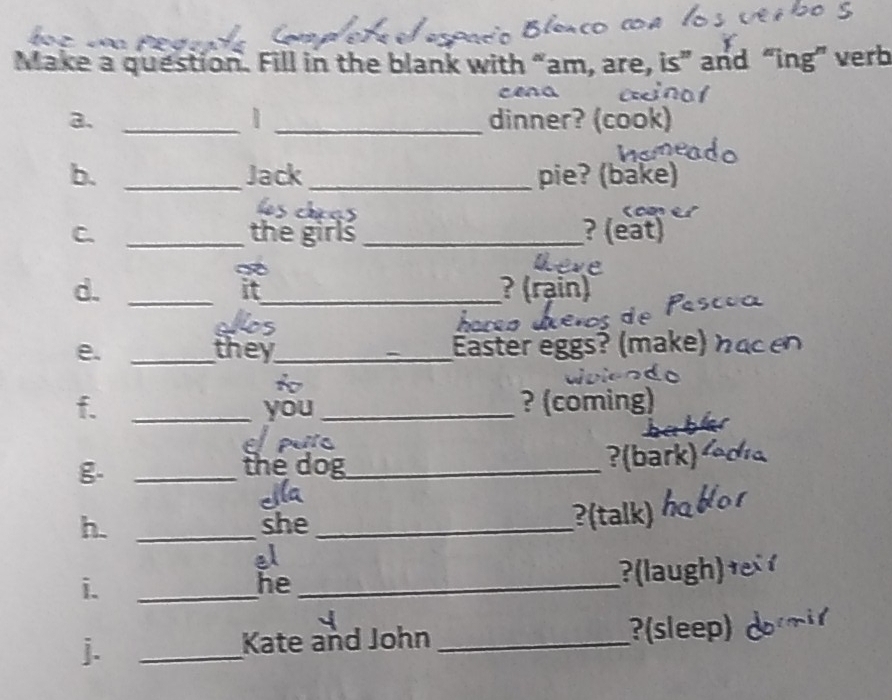 haz una pregunta Completa el espacio Blanco con los verbos
y
Make a question. Fill in the blank with “am, are, is” and “ing” verb
cena cocinar
a. ________ I ________ dinner? (cook)
horneado
b. ________ Jack ________ pie? (bake)
las chicas comer
c. ________ the girls ________ ? (eat)
d. ________ it ________ ? (rain)
ellos de Pascua
e. ________ they ________ Easter eggs? (make) hacen
f. ________ you ________ ? (coming)
el
g. ________ the dog ________ ?(bark) ladra
ella
h. ________ she ________ ?(talk) hablar
el
i. ________ he ________ ?(laugh) reir
y
j. ________ Kate and John ________ ?(sleep) dormir